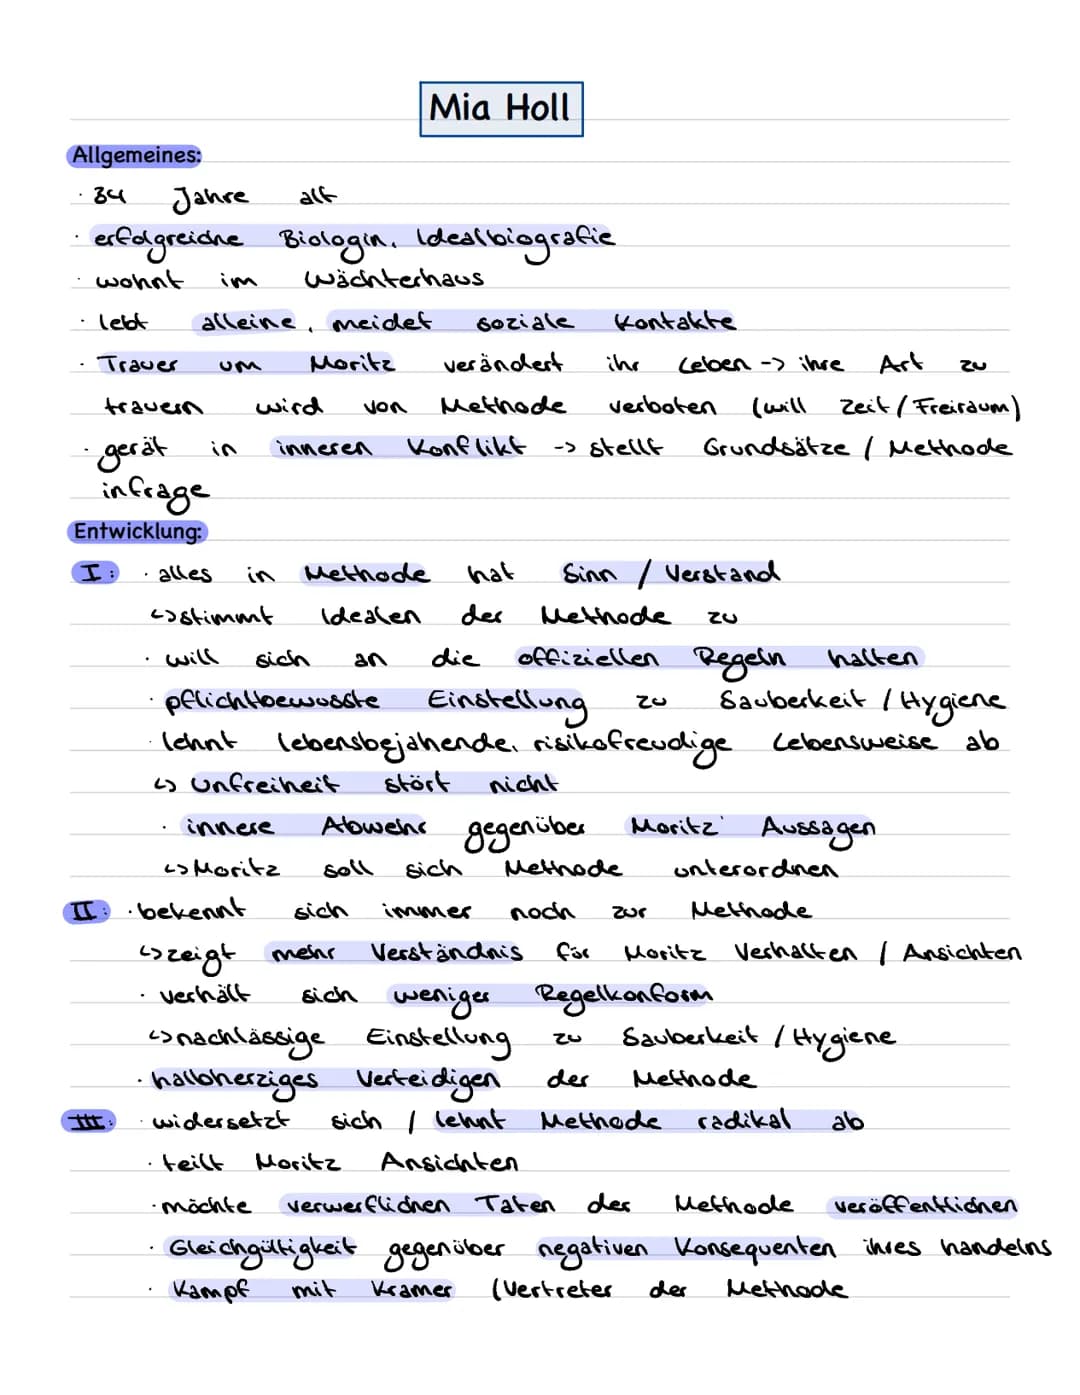 Mia Holl
Allgemeines:
· 34 Jahre alt
· erfolgreiche Biologin, Idealbiografie
· wohnt im Wächterhaus
· lebt alleine, meidet soziale Kontakte
· Trauer um Moritz verändert ihr Leben -> ihre Art zu
trauern wird von Methode verboten (will Zeit/Freiraum)
· gerät in inneren Konflikt -> stellt Grundsätze / Methode
infrage
Entwicklung:
I: · alles in Methode hat Sinn / Verstand
↳ stimmt Idealen der Methode zu
· will sich an die offiziellen Regeln halten
· pflichtbewusste Einstellung zu Sauberkeit / Hygiene
· lehnt lebensbejahende, risikofreudige Lebensweise ab
↳ Unfreiheit stört nicht
· innere Abwehr gegenüber Moritz' Aussagen
↳ Moritz soll sich Methode unterordnen
II: · bekennt sich immer noch zur Methode
↳ zeigt mehr Verständnis für Moritz Verhalten / Ansichten
· verhält sich weniger Regelkonform
↳ nachlässige Einstellung zu Sauberkeit / Hygiene
· halbherziges Verteidigen der Methode
III: · widersetzt sich / lehnt Methode radikal ab
· teilt Moritz Ansichten
· möchte verwerflichen Taten der Methode veröffentlichen
· Gleichgültigkeit gegenüber negativen Konsequenten ihres handelns
· Kampf mit Kramer (Vertreter der Methode